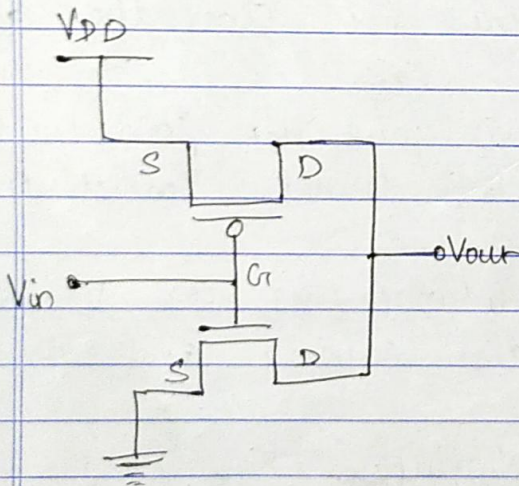 VDD
S D
Vout
G
Vin
S D